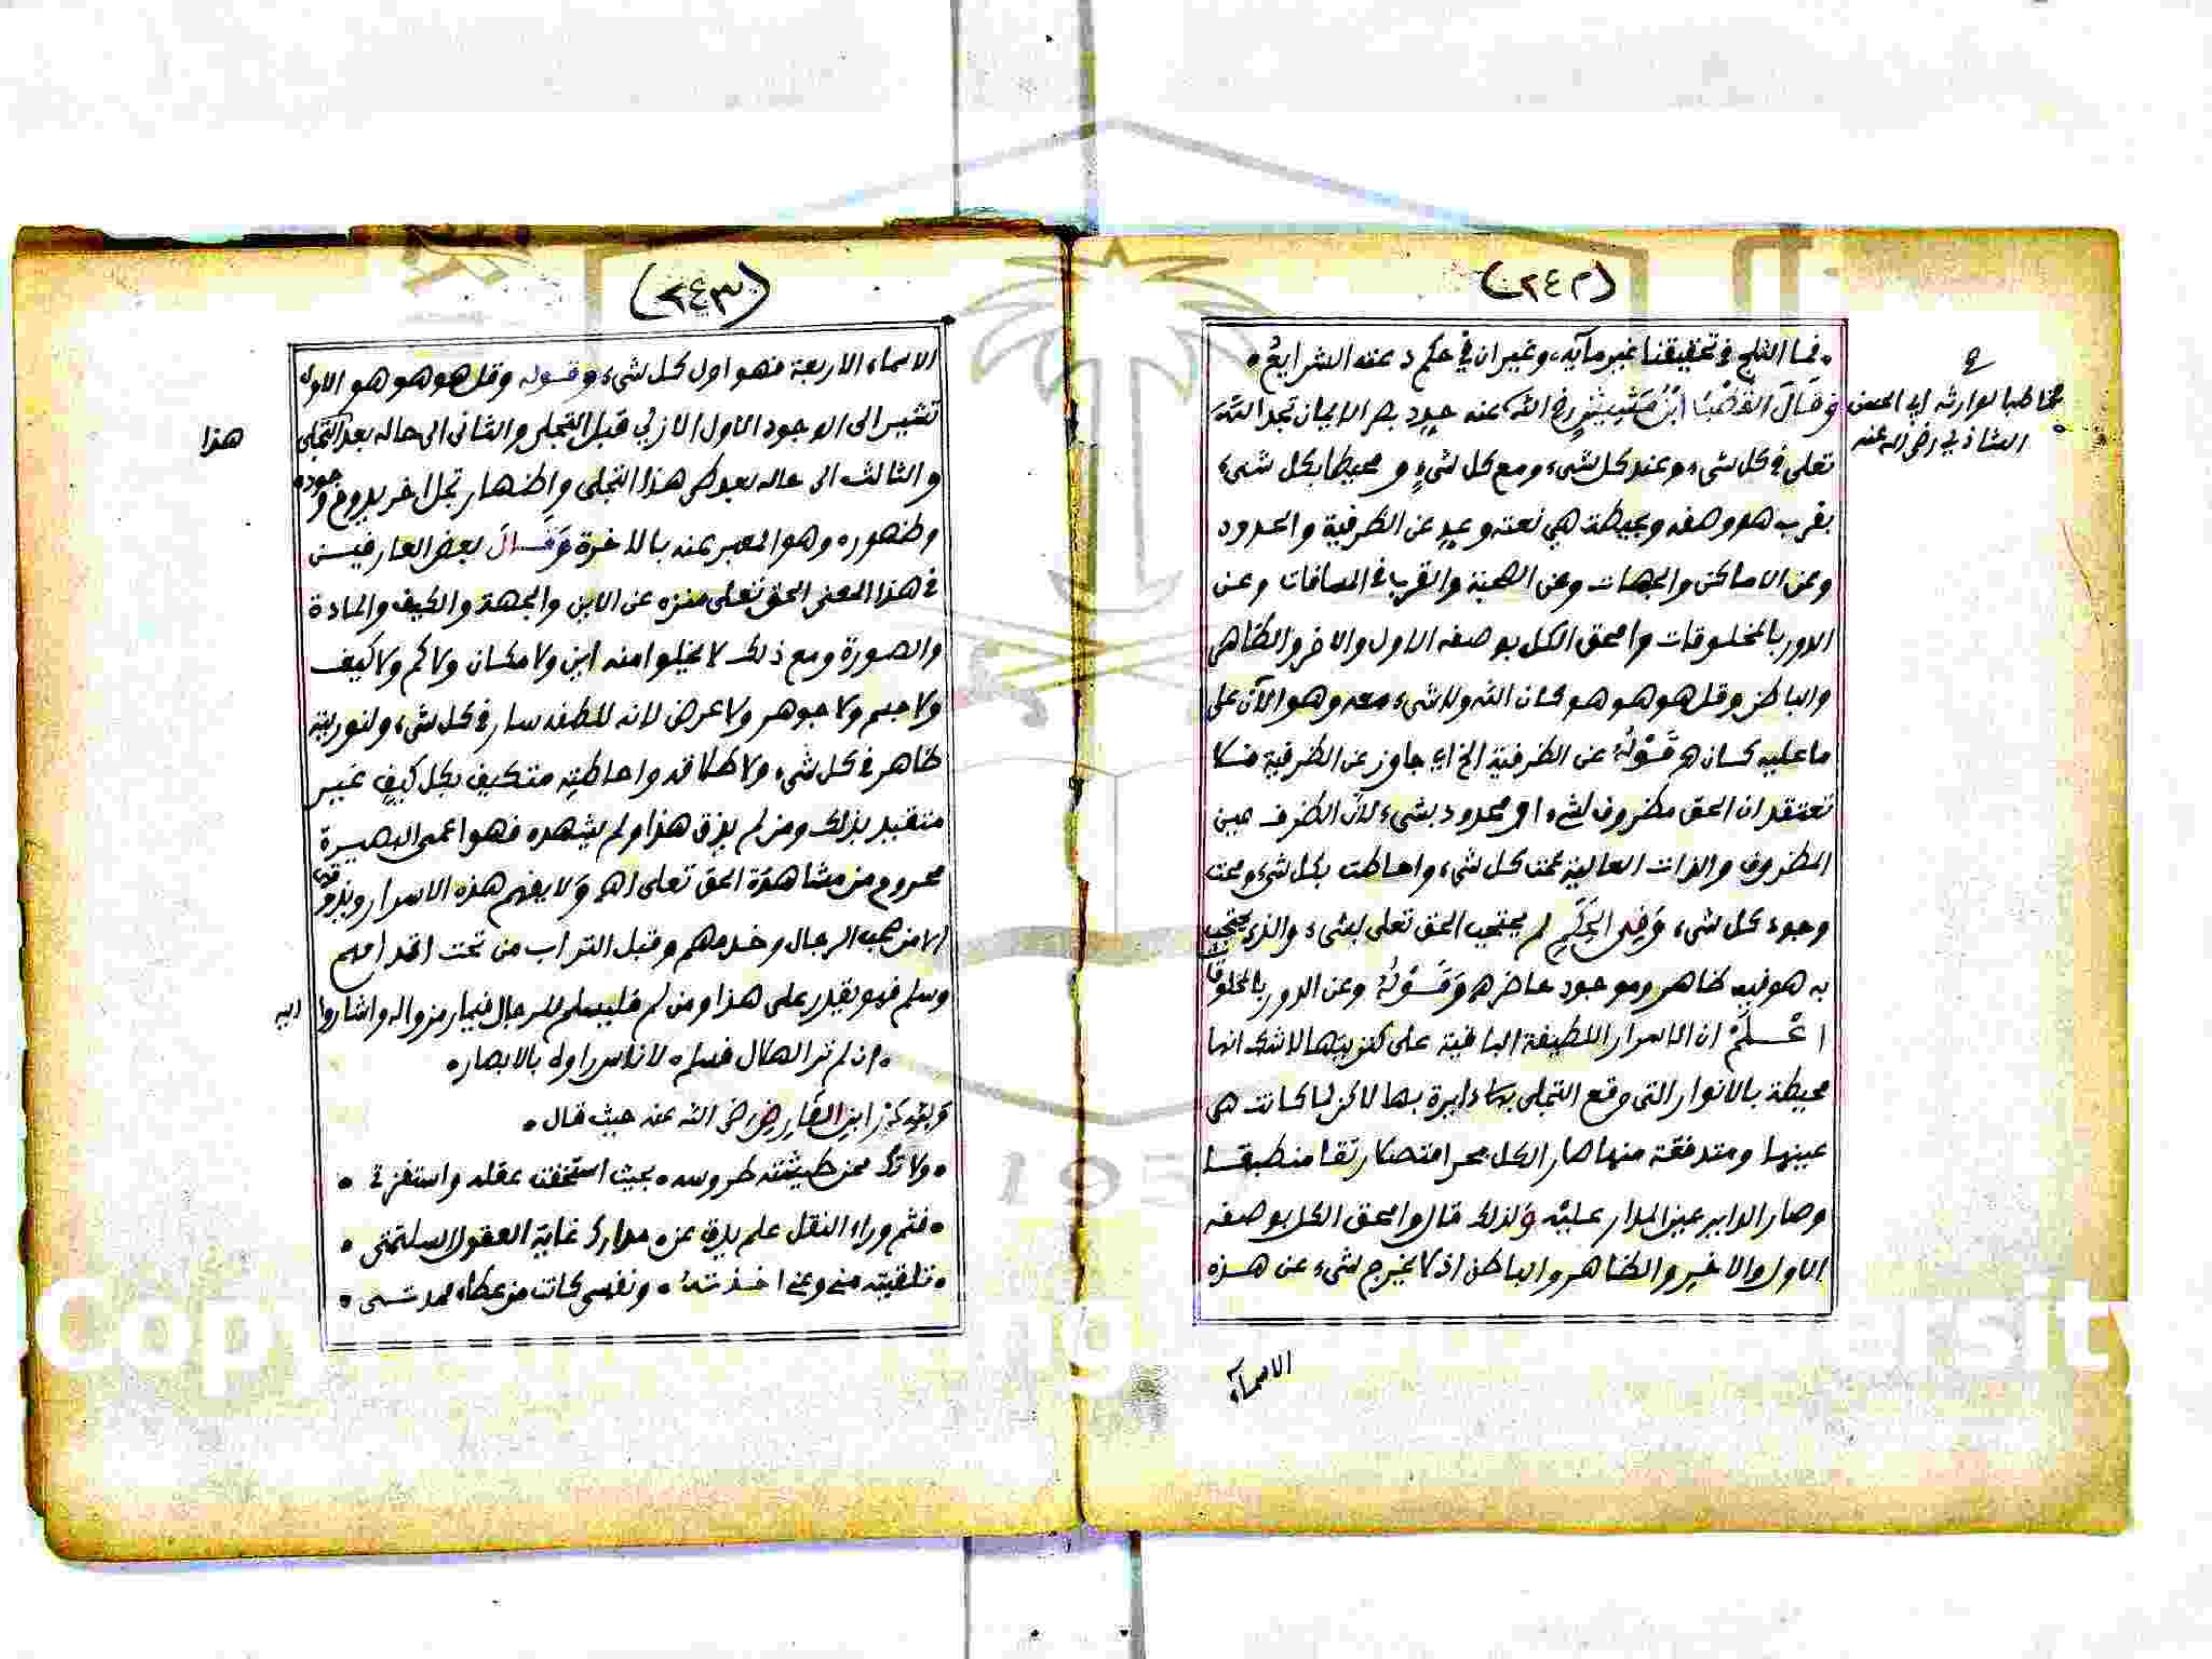 (٢٤٢)
• فما الثلج في تحقيقنا غير مآيه، وغيران في حكم دعته الشرايع •
وقال القطب ابن مشيش رضي الله عنه حدد بصر الايمان تجد الله
مخاطبا لوارثه ابي الحسن
الشاذلي رضي الله عنه
تعلى في كل شيء وعند كل شيء ومع كل شيء و محيطا بكل شيء
بقرب هو وصفه وبحيطة هي نعته وعد عن الظرفية والحدود
وعن الاماكن والجهات وعن الصحبة والقرب في المسافات وعن
الدور بالمخلوقات وامحق الكل بوصفه الاول والاخر والظاهر
والباطن وقل هو هو هو كان الله ولا شيء معه وهو الآن على
ما عليه كان ه قوله عن الظرفية الخ اي جاوز عن الظرفية فلا
تعتقد ان الحق مظروف لشيء او محدود بشيء لان الظرف عين
المظروف والذات العالية عمت كل شيء واحاطت بكل شيء ومحت
وجود كل شيء وفي الحكم لم يحتجب الحق تعلى بشيء والذي يحتجب
به هو فيه ظاهر وموجود حاضر ه وقوله وعن الدور بالمخلوقات
اعلم ان الاسرار اللطيفة الباقية على كنزيتها لا شك انها
محيطة بالانوار التي وقع التجلي بها دايرة بها لاكن لما كانت هي
عينها ومتدفقة منها صار الكل بحرا متصلا رتقا منطبقا
وصار الداير عين المدار عليه ولذلك قال وامحق الكل بوصفه
الاول والاخر والظاهر والباطن اذ لا يخرج شيء عن هذه
الاسماء
(٢٤٣)
الاسماء الاربعة فهو اول كل شيء وقوله وقل هو هو هو الاول
تشير الى الوجود الاول الازلي قبل التجلي والثاني الى حاله بعد التجلي
هذا
والثالث الى حاله بعد طي هذا التجلي واظهار تجل اخر يدوم وجوده
وظهوره وهو المعبر عنه بالاخرة وقال بعض العارفين
في هذا المعنى الحق تعلى منزه عن الاين والجهة والكيف والمادة
والصورة ومع ذلك لا يخلوا منه اين ولا مكان ولا كم ولا كيف
ولا جسم ولا جوهر ولا عرض لانه للطفه سار في كل شيء ولنوريته
ظاهر في كل شيء ولاطلاقه واحاطته متكيف بكل كيف غير
متقيد بذلك ومن لم يذق هذا ولم يشهده فهو اعمى البصيرة
محروم من مشاهدة الحق تعلى اهـ ولا يفهم هذه الاسرار ويذوقها
الا من صحب الرجال وخدمهم وقبل التراب من تحت اقدامهم
وسلم فيو يقدر على هذا ومن لم فليسلم للرجال فيما رمزوا له واشاروا اليه
• ان لم تر الهلال فسلم • لاناس راوه بالابصار •
ويقول ابن الفارض رضي الله عنه حيث قال •
• ولا تك ممن طيشته طروسه • بحيث استخفت عقله واستفزت •
• فثم وراء النقل علم يدق عن • مدارك غاية العقول السليمتي •
• تلقيته مني وعني اخذته • ونفسي كانت من عطاء ممدتي •